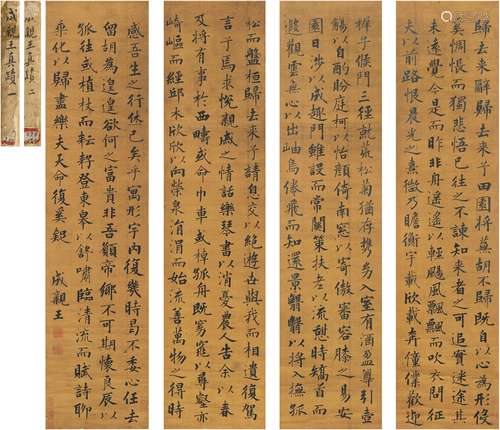 歸去來辭歸去來兮田園將蕪胡不歸既自以心為形役
奚惆悵而獨悲悟已往之不諫知來者之可追實迷途其
未遠覺今是而昨非舟遙遙以輕颺風飄飄而吹衣問征
夫以前路恨晨光之熹微乃瞻衡宇載欣載奔僮僕歡迎
稚子候門三徑就荒松菊猶存攜幼入室有酒盈罇引壺
觴以自酌眄庭柯以怡顏倚南窓以寄傲審容膝之易安
園日涉以成趣門雖設而常關策扶老以流憩時矯首而
遐觀雲無心以出岫鳥倦飛而知還景翳翳以將入撫孤
松而盤桓歸去來兮請息交以絕遊世與我而相遺復駕
言兮焉求悅親戚之情話樂琴書以消憂農人告余以春
及將有事於西疇或命巾車或棹孤舟既窈窕以尋壑亦
崎嶇而經邱木欣欣以向榮泉涓涓而始流善萬物之得時
感吾生之行休已矣乎寓形宇內復幾時曷不委心任去
留胡為遑遑欲何之富貴非吾願帝鄉不可期懷良辰以
孤往或植杖而耘耔登東皋以舒嘯臨清流而賦詩聊
乘化以歸盡樂夫天命復奚疑
成親王
成親王真蹟 二
成親王真蹟 一